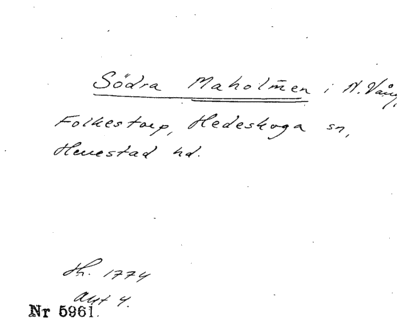 Södra Maholmen i N. Vång,
Folkestorp, Hedeskoga sn,
Herrestad hd.
Sk. 1774
akt 4.
Nr 5961.